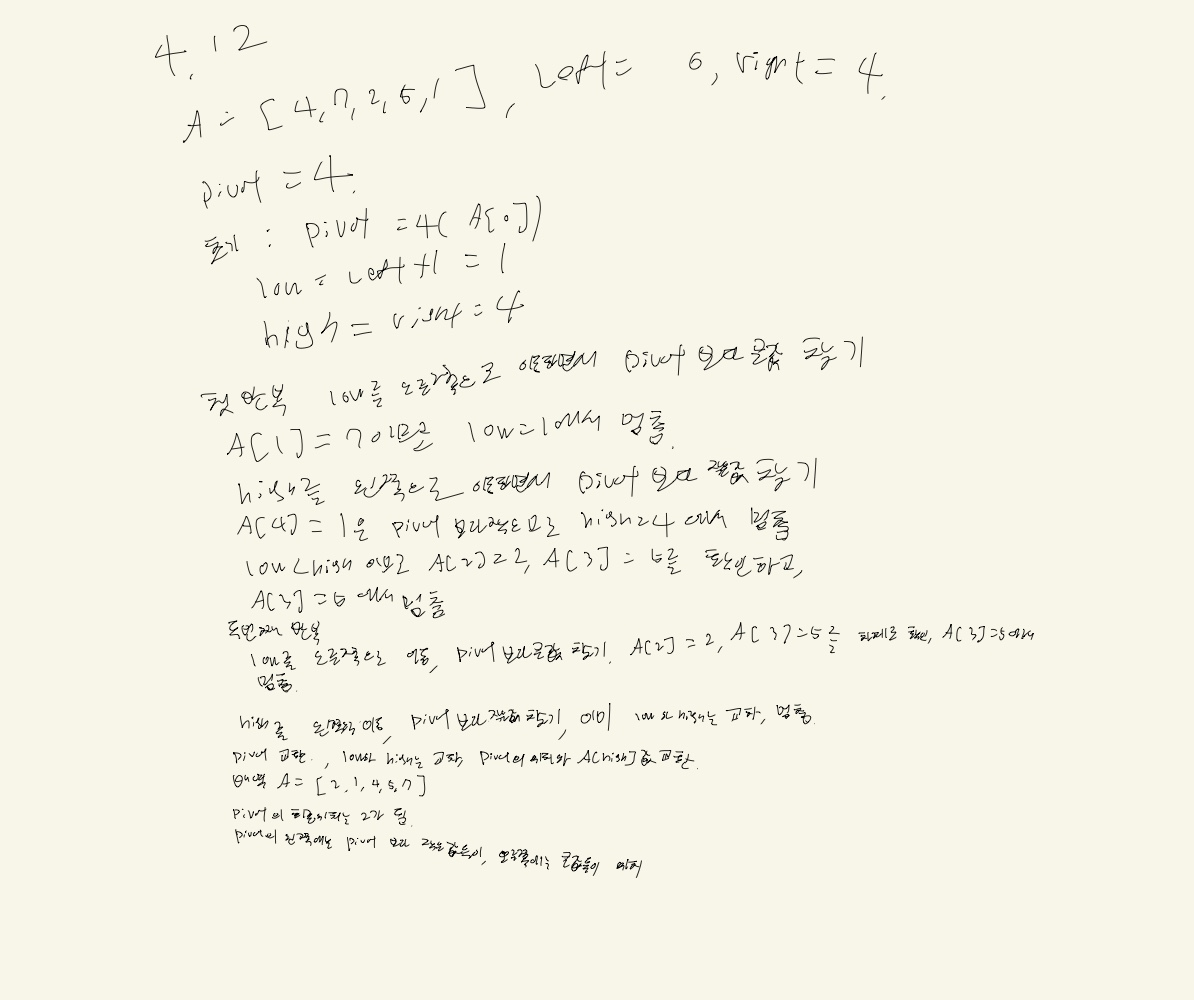 4.12
A = [4,7,2,5,1], left = 0, right = 4.
pivot = 4.
초기 : pivot = 4( A[0])
low = left +1 = 1
high = right = 4
첫 반복 low를 오른쪽으로 이동하면서 pivot 보다 큰값 찾기
A[1] = 7 이므로 low=1에서 멈춤.
high를 왼쪽으로 이동하면서 pivot 보다 작은값 찾기
A[4] = 1은 pivot 보다작으므로 high=4 에서 멈춤
low<high 이므로 A[2]=2, A[3] = 5를 확인하고,
A[3] = 5 에서 멈춤
두번째 반복
low를 오른쪽으로 이동, pivot 보다 큰값 찾기. A[2] = 2, A[3]=5를 차례로 확인, A[3]=5에서
멈춤.
high를 왼쪽으로 이동, pivot 보다 작은값 찾기, 이미 low와 high는 교차, 멈춤.
pivot 교환, low와 high는 교차, pivot의 위치와 A[high]값 교환.
배열 A = [2,1,4,5,7]
pivot의 위치는 2가 됨.
pivot의 왼쪽에는 pivot 보다 작은값들이, 오른쪽에는 큰값들이 위치